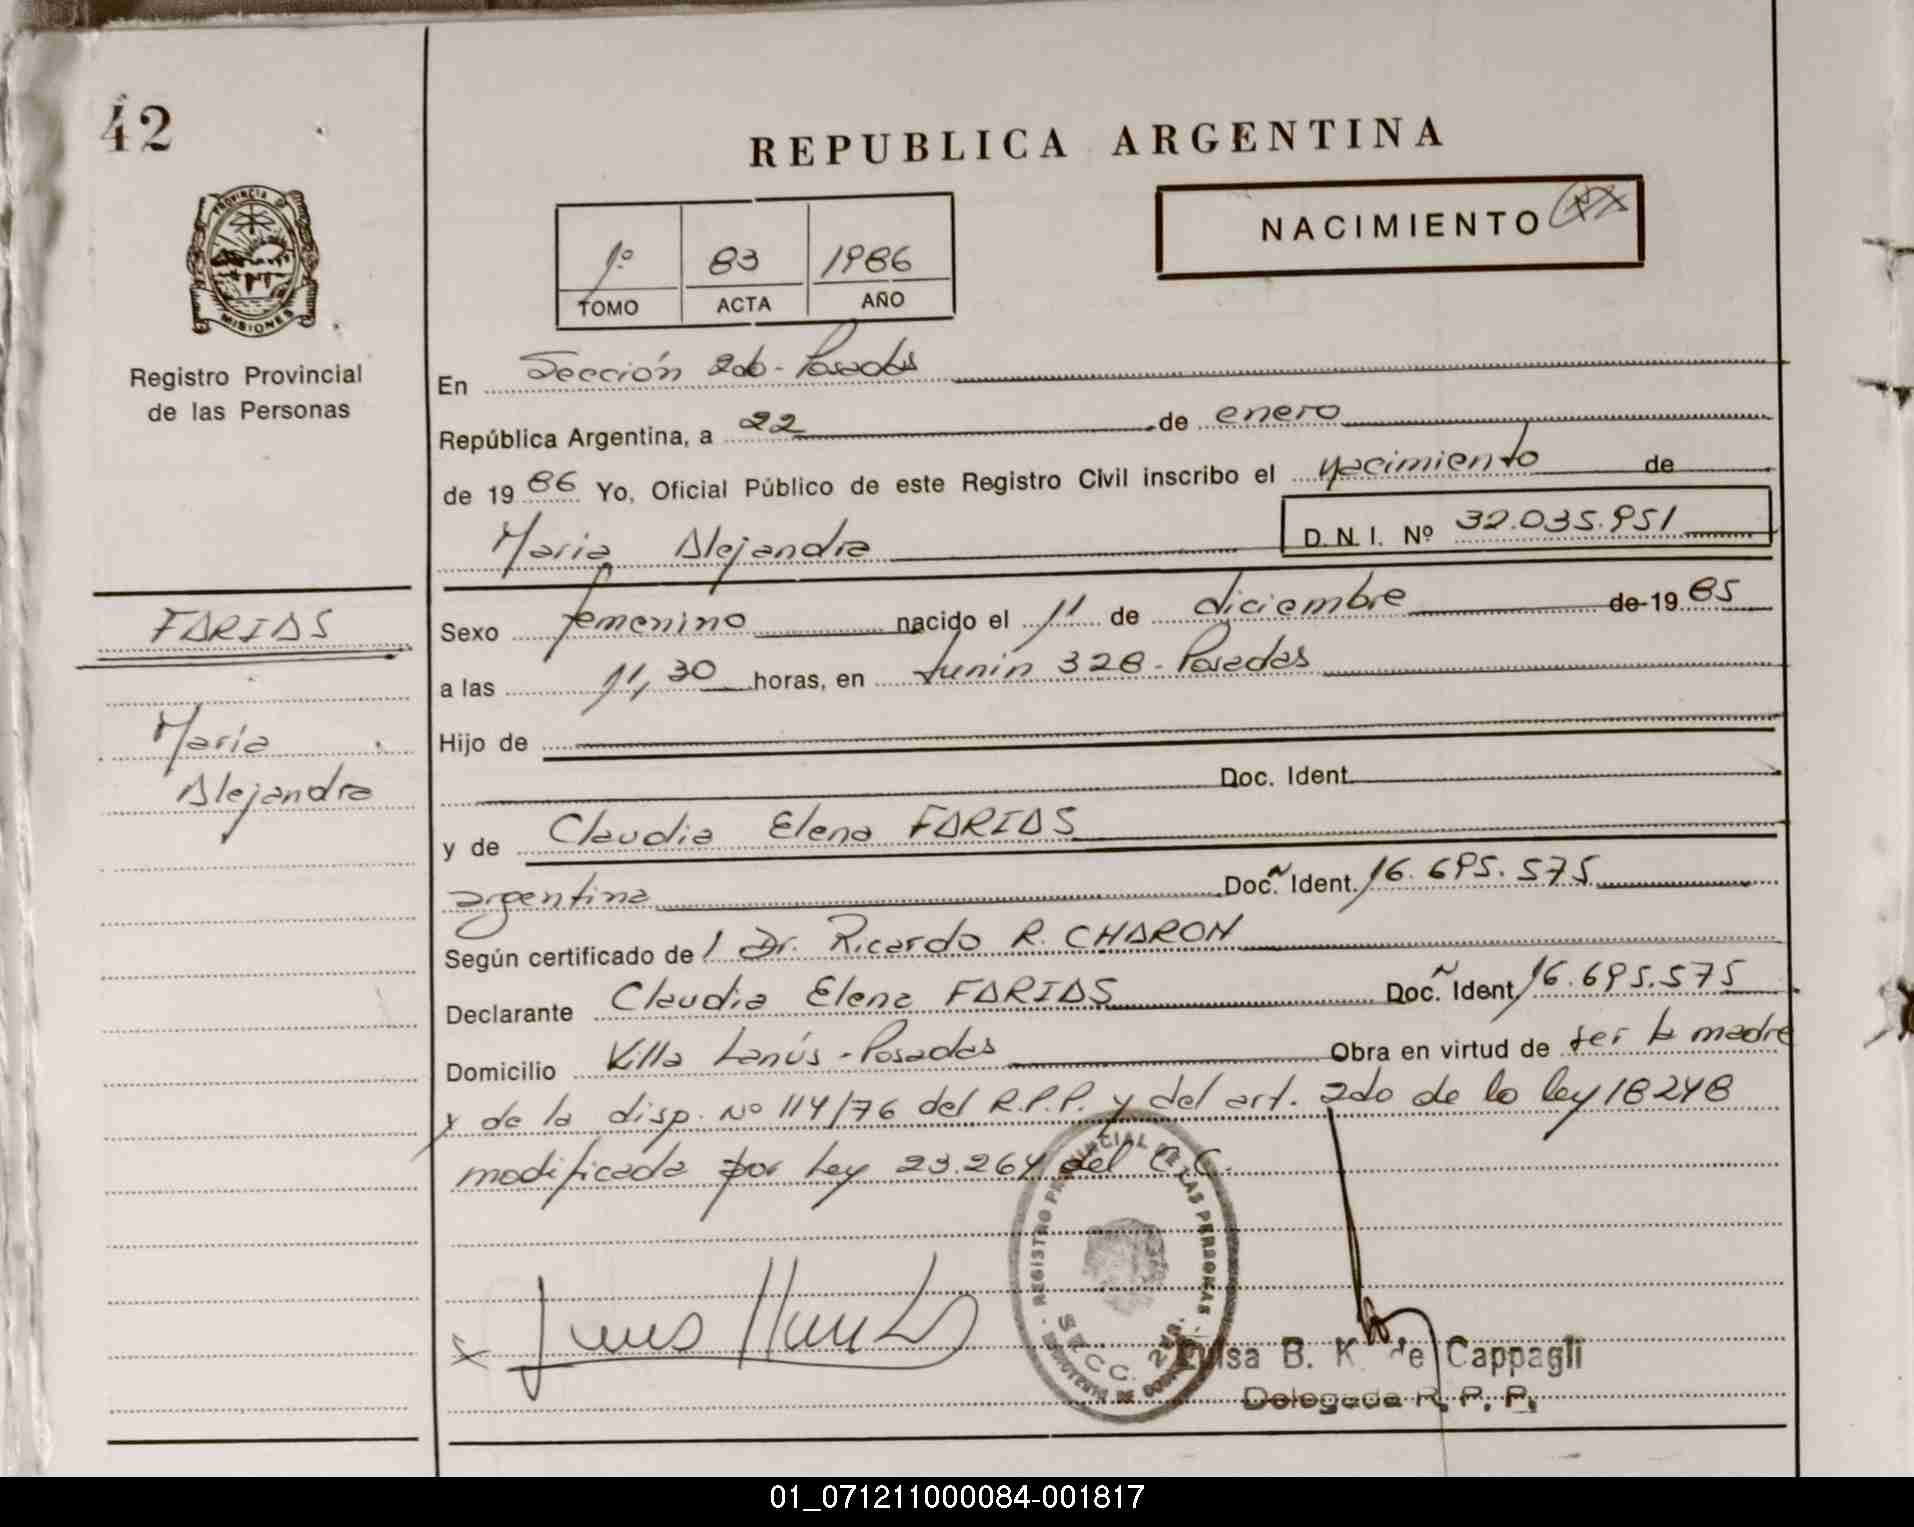 42
REPUBLICA ARGENTINA
PROVINCIA DE
MISIONES
Registro Provincial
de las Personas
1º 83 1986
TOMO ACTA AÑO
NACIMIENTO
En Sección 2da - Posadas
República Argentina, a 22 de enero
de 19 86 Yo, Oficial Público de este Registro Civil inscribo el nacimiento de
María Alejandra D.N.I. Nº 32.035.951
FARIAS
María
Alejandra
Sexo femenino nacido el 11 de diciembre de 19 85
a las 11,30 horas, en Junin 328 - Posadas
Hijo de
Doc. Ident.
y de Claudia Elena FARIAS
argentina Doc. Ident. 16.695.575
Según certificado de l Dr. Ricardo R. CHARON
Declarante Claudia Elena FARIAS Doc. Ident. 16.695.575
Domicilio Villa Lanús - Posadas Obra en virtud de ser la madre
y de la disp. Nº 114/76 del R.P.P. y del art. 2do de la ley 18248
modificada por Ley 23.264 del C.C.
REGISTRO PROVINCIAL DE LAS PERSONAS
SECC. 2da.
x
Luisa B. K. de Cappagli
Delegada R. P. P.
01_071211000084-001817